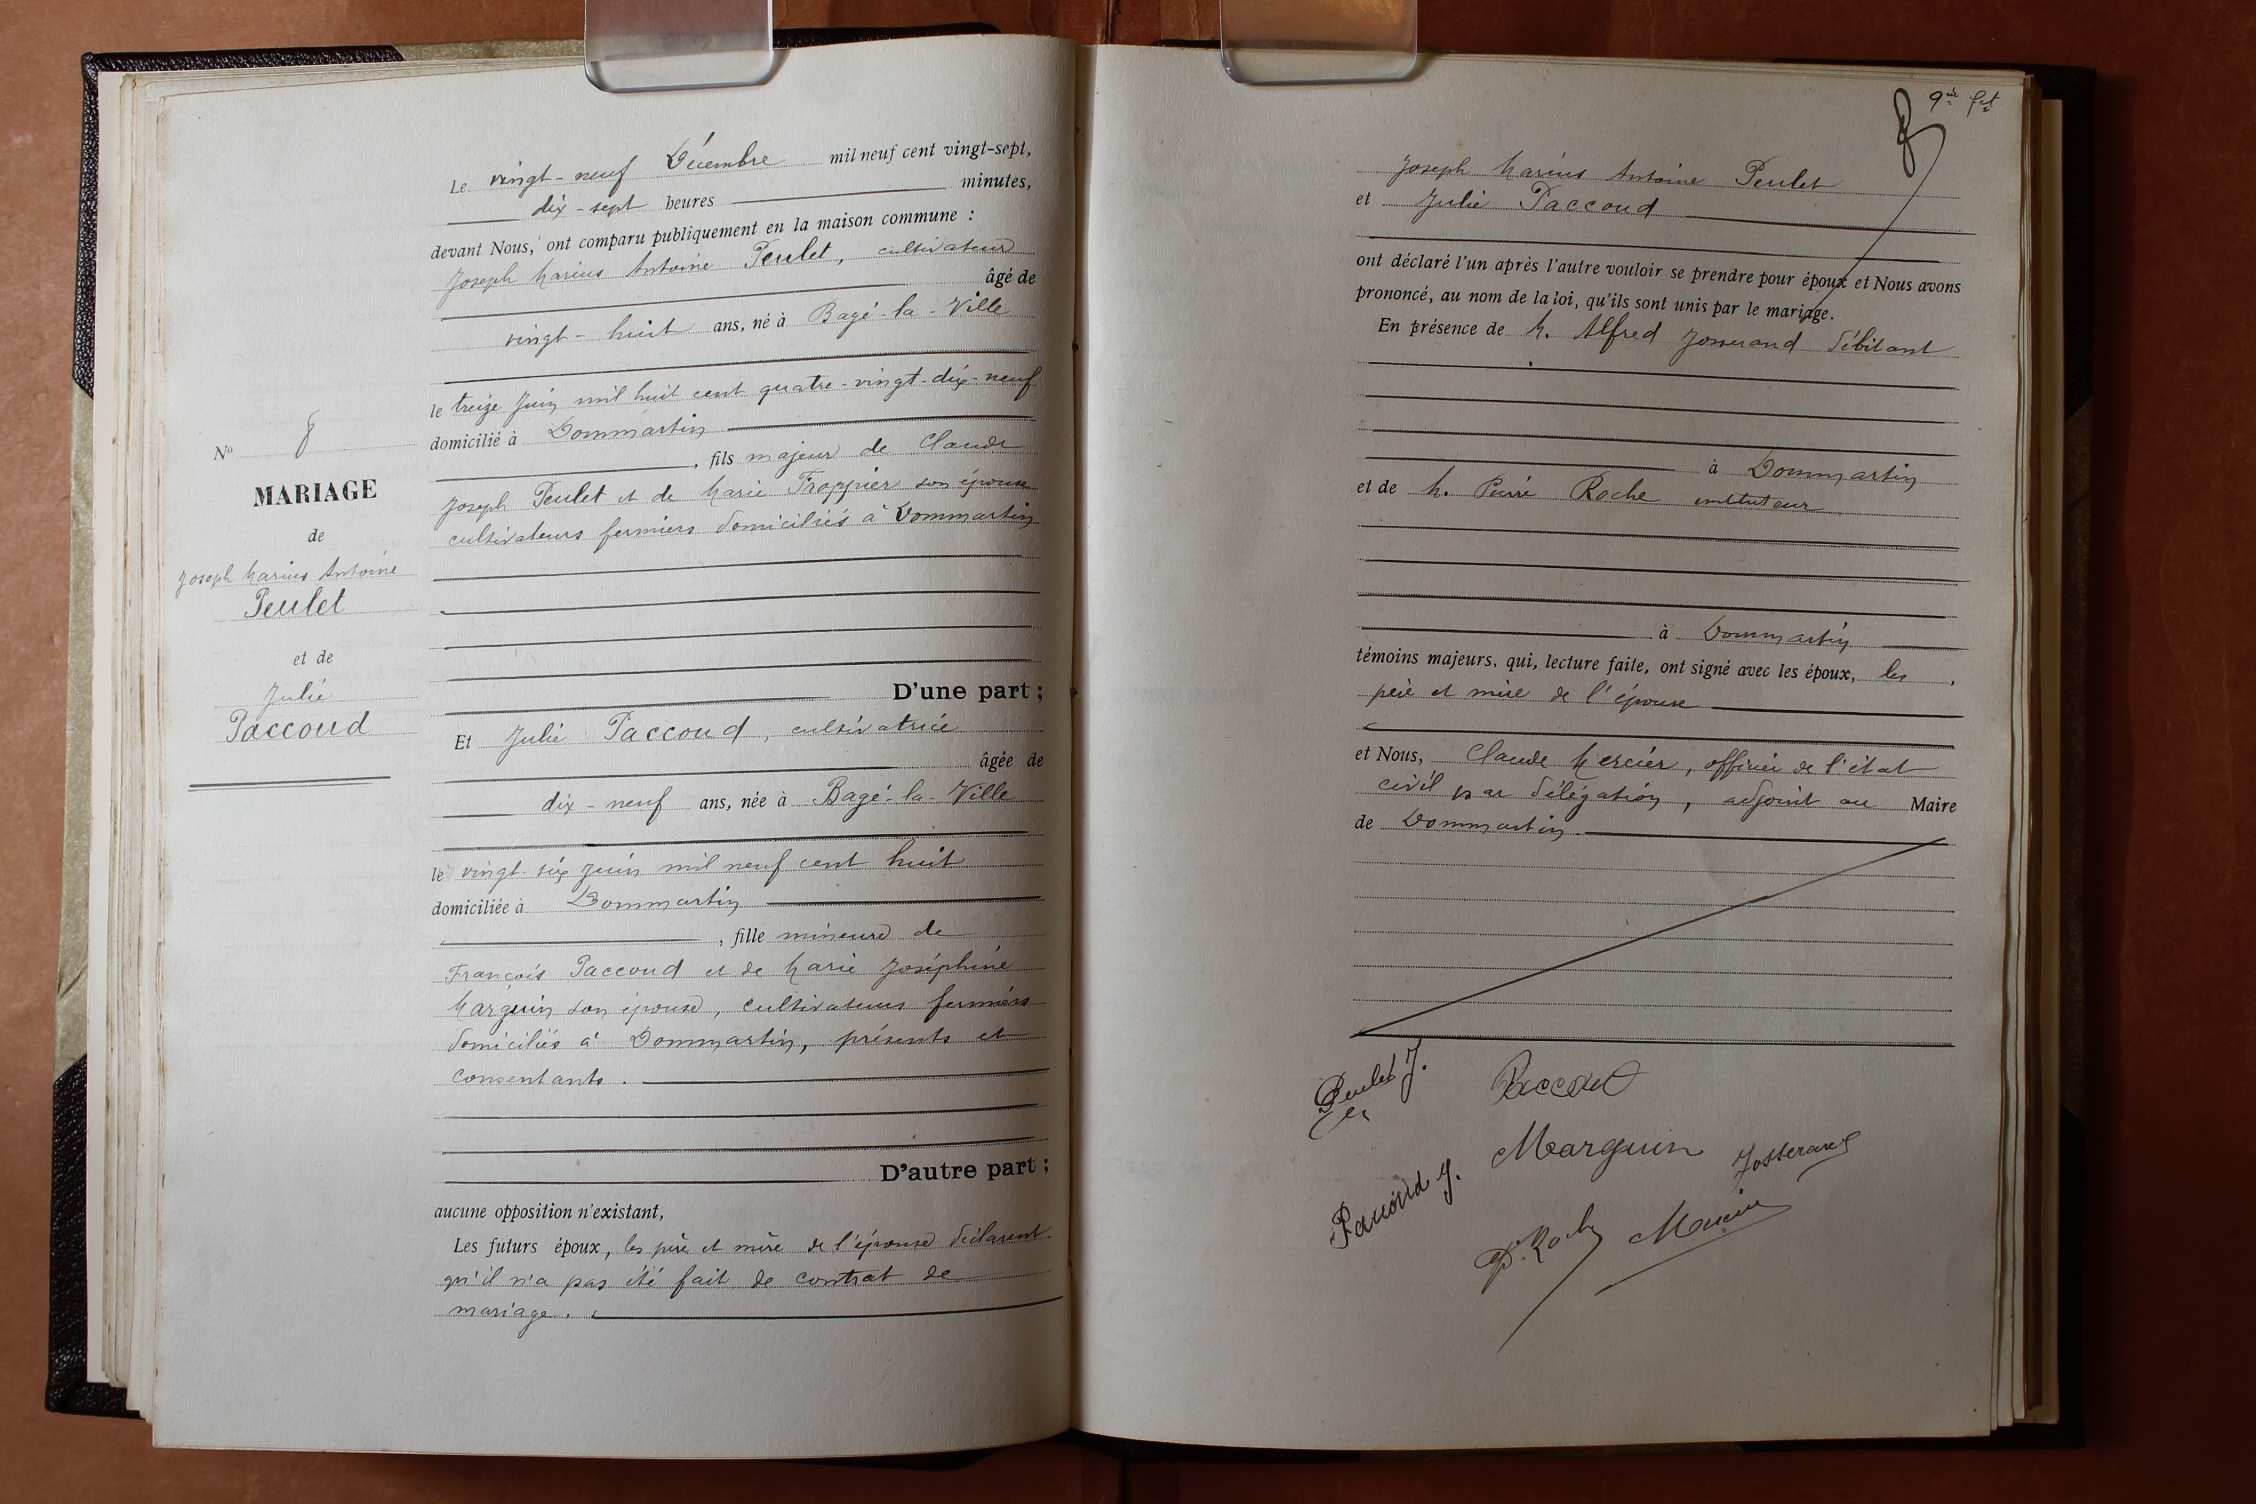 Le vingt-neuf Décembre mil neuf cent vingt-sept,
dix-sept heures minutes,
devant Nous, ont comparu publiquement en la maison commune :
Joseph Marius Antoine Peulet, cultivateur
âgé de
vingt-huit ans, né à Bagé-la-Ville
le treize Juin mil huit cent quatre-vingt-dix-neuf
domicilié à Dommartin
, fils majeur de Claude
Joseph Peulet et de Marie Froppier son épouse
cultivateurs fermiers domiciliés à Dommartin
D'une part ;
Nº 8
MARIAGE
de
Joseph Marius Antoine
Peulet
et de
Julie
Paccoud
Et Julie Paccoud, cultivatrice
âgée de
dix-neuf ans, née à Bagé-la-Ville
le vingt-six juin mil neuf cent huit
domiciliée à Dommartin
, fille mineure de
François Paccoud et de Marie Joséphine
Marguin son épouse, cultivateurs fermiers
domiciliés à Dommartin, présents et
consentants.
D'autre part ;
aucune opposition n'existant,
Les futurs époux, les père et mère de l'épouse déclarent
qu'il n'a pas été fait de contrat de
mariage.
9e ft
Joseph Marius Antoine Peulet
et Julie Paccoud
ont déclaré l'un après l'autre vouloir se prendre pour époux et Nous avons
prononcé, au nom de la loi, qu'ils sont unis par le mariage.
En présence de M. Alfred Josserand débitant
à Dommartin
et de M. Pierre Roche instituteur
à Dommartin
témoins majeurs, qui, lecture faite, ont signé avec les époux, les
père et mère de l'épouse
et Nous, Claude Mercier, officier de l'état
civil par délégation, adjoint au Maire
de Dommartin.
Peulet J.
Paccoud
Marguin
Josserand
Paccoud J.
P. Roche
Mercier